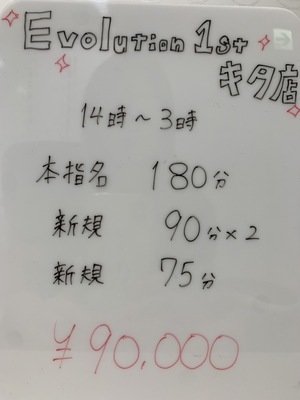 Evolution 1st
キタ店
14時～3時
本指名 180分
新規 90分×2
新規 75分
¥90.000